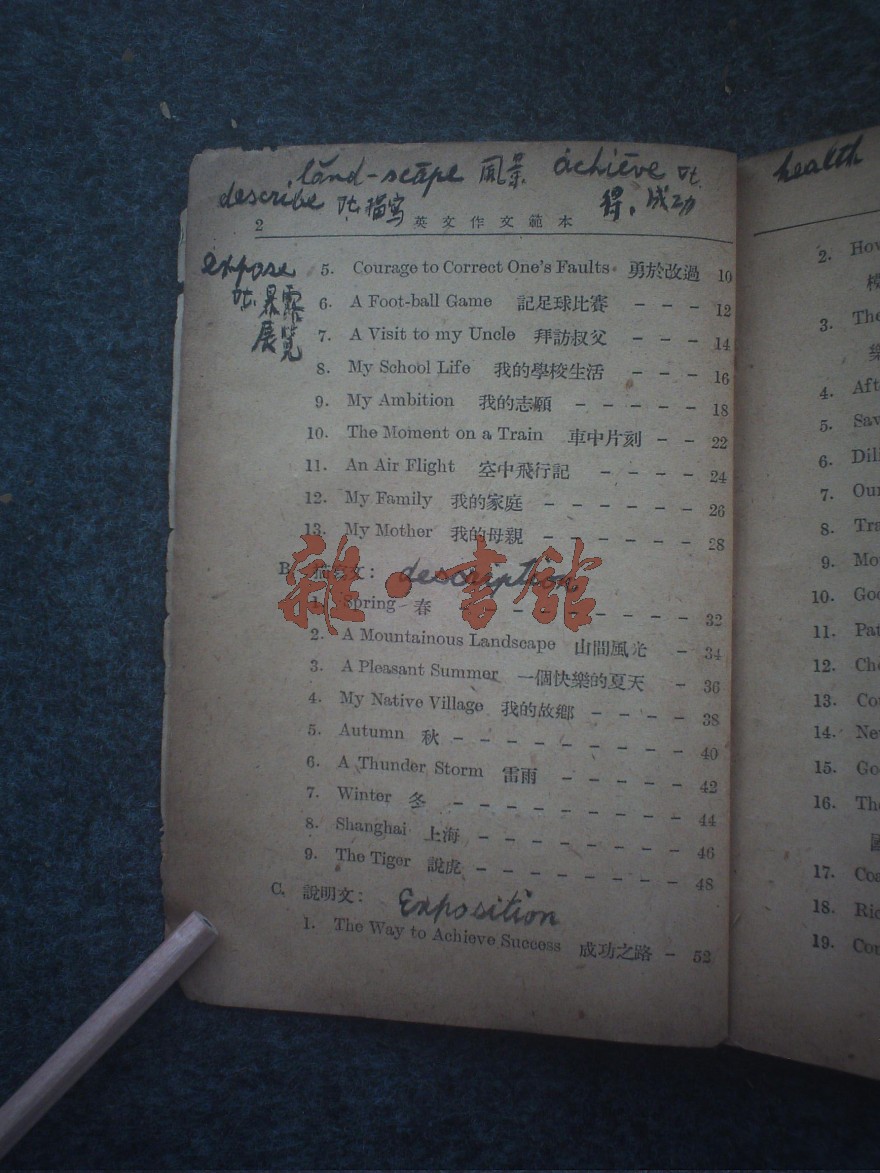 lănd-scāpe 風景 achiēve vt.
describe vt.描寫 得,成功
2 英文作文範本
expose
vt.暴露
展覽
5. Courage to Correct One's Faults 勇於改過 10
6. A Foot-ball Game 記足球比賽 – – – 12
7. A Visit to my Uncle 拜訪叔父 – – – 14
8. My School Life 我的學校生活 – – – 16
9. My Ambition 我的志願 – – – – – 18
10. The Moment on a Train 車中片刻 – – 22
11. An Air Flight 空中飛行記 – – – – 24
12. My Family 我的家庭 – – – – – – 26
13. My Mother 我的母親 – – – – – – 28
B. 描寫文: description
1. Spring 春 – – – – – – – – 32
2. A Mountainous Landscape 山間風光 – 34
3. A Pleasant Summer 一個快樂的夏天 – 36
4. My Native Village 我的故鄉 – – – – 38
5. Autumn 秋 – – – – – – – – 40
6. A Thunder Storm 雷雨 – – – – – 42
7. Winter 冬 – – – – – – – – 44
8. Shanghai 上海 – – – – – – – 46
9. The Tiger 說虎 – – – – – – – 48
C. 說明文: Exposition
1. The Way to Achieve Success 成功之路 – 52
雜·書館
health
2. How
3. The
樂
4. Aft
5. Sav
6. Dili
7. Our
8. Tra
9. Mo
10. Goo
11. Pat
12. Che
13. Cou
14. Ne
15. Go
16. The
17. Coa
18. Ric
19. Con